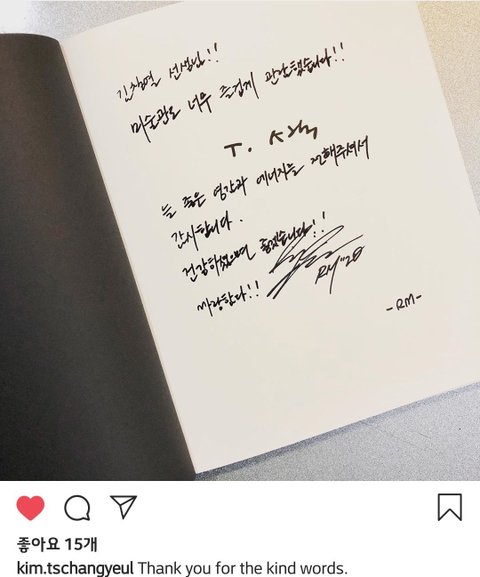 김창열 선생님!!
미술관도 너무 즐겁게 관람했습니다!!
T. Kim
늘 좋은 영감과 에너지를 전해주셔서
감사합니다.
건강하셨으면 좋겠습니다!!
RM '20
-RM-
좋아요 15개
kim.tschangyeul Thank you for the kind words.